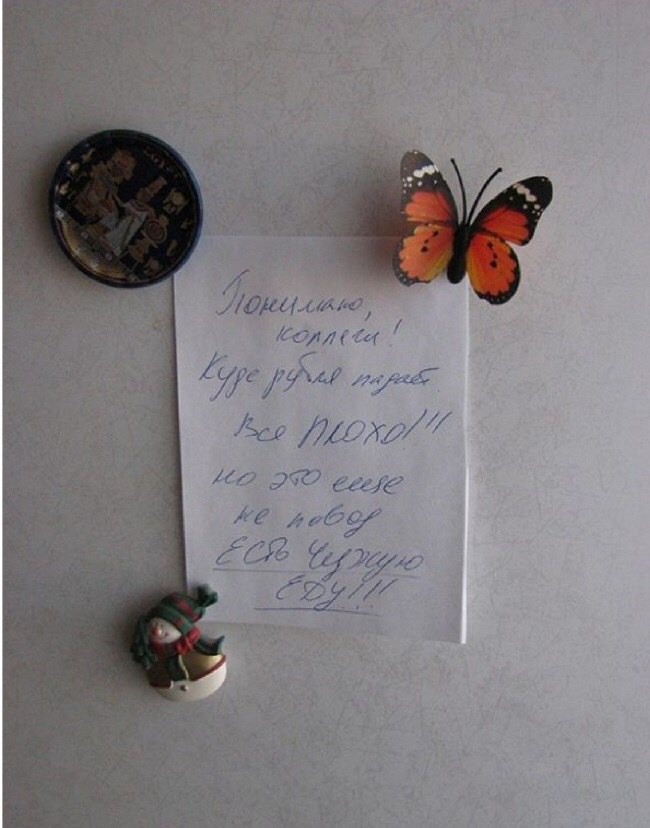 Понимаю,
коллеги!
Курс рубля падает.
Все ПЛОХО!!!
но это еще
не повод
ЕСТЬ Чужую
ЕДУ!!!